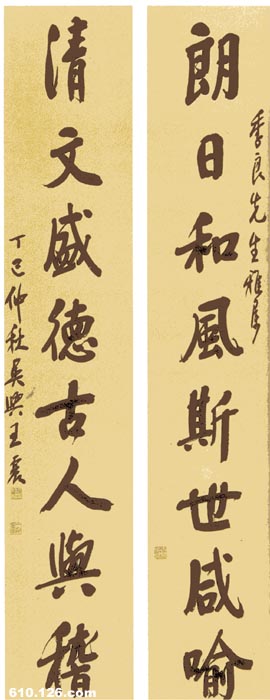 季良先生雅属
朗日和風斯世咸喻
清文盛德古人與稽
丁巳仲秋吳興王震
610.126.com